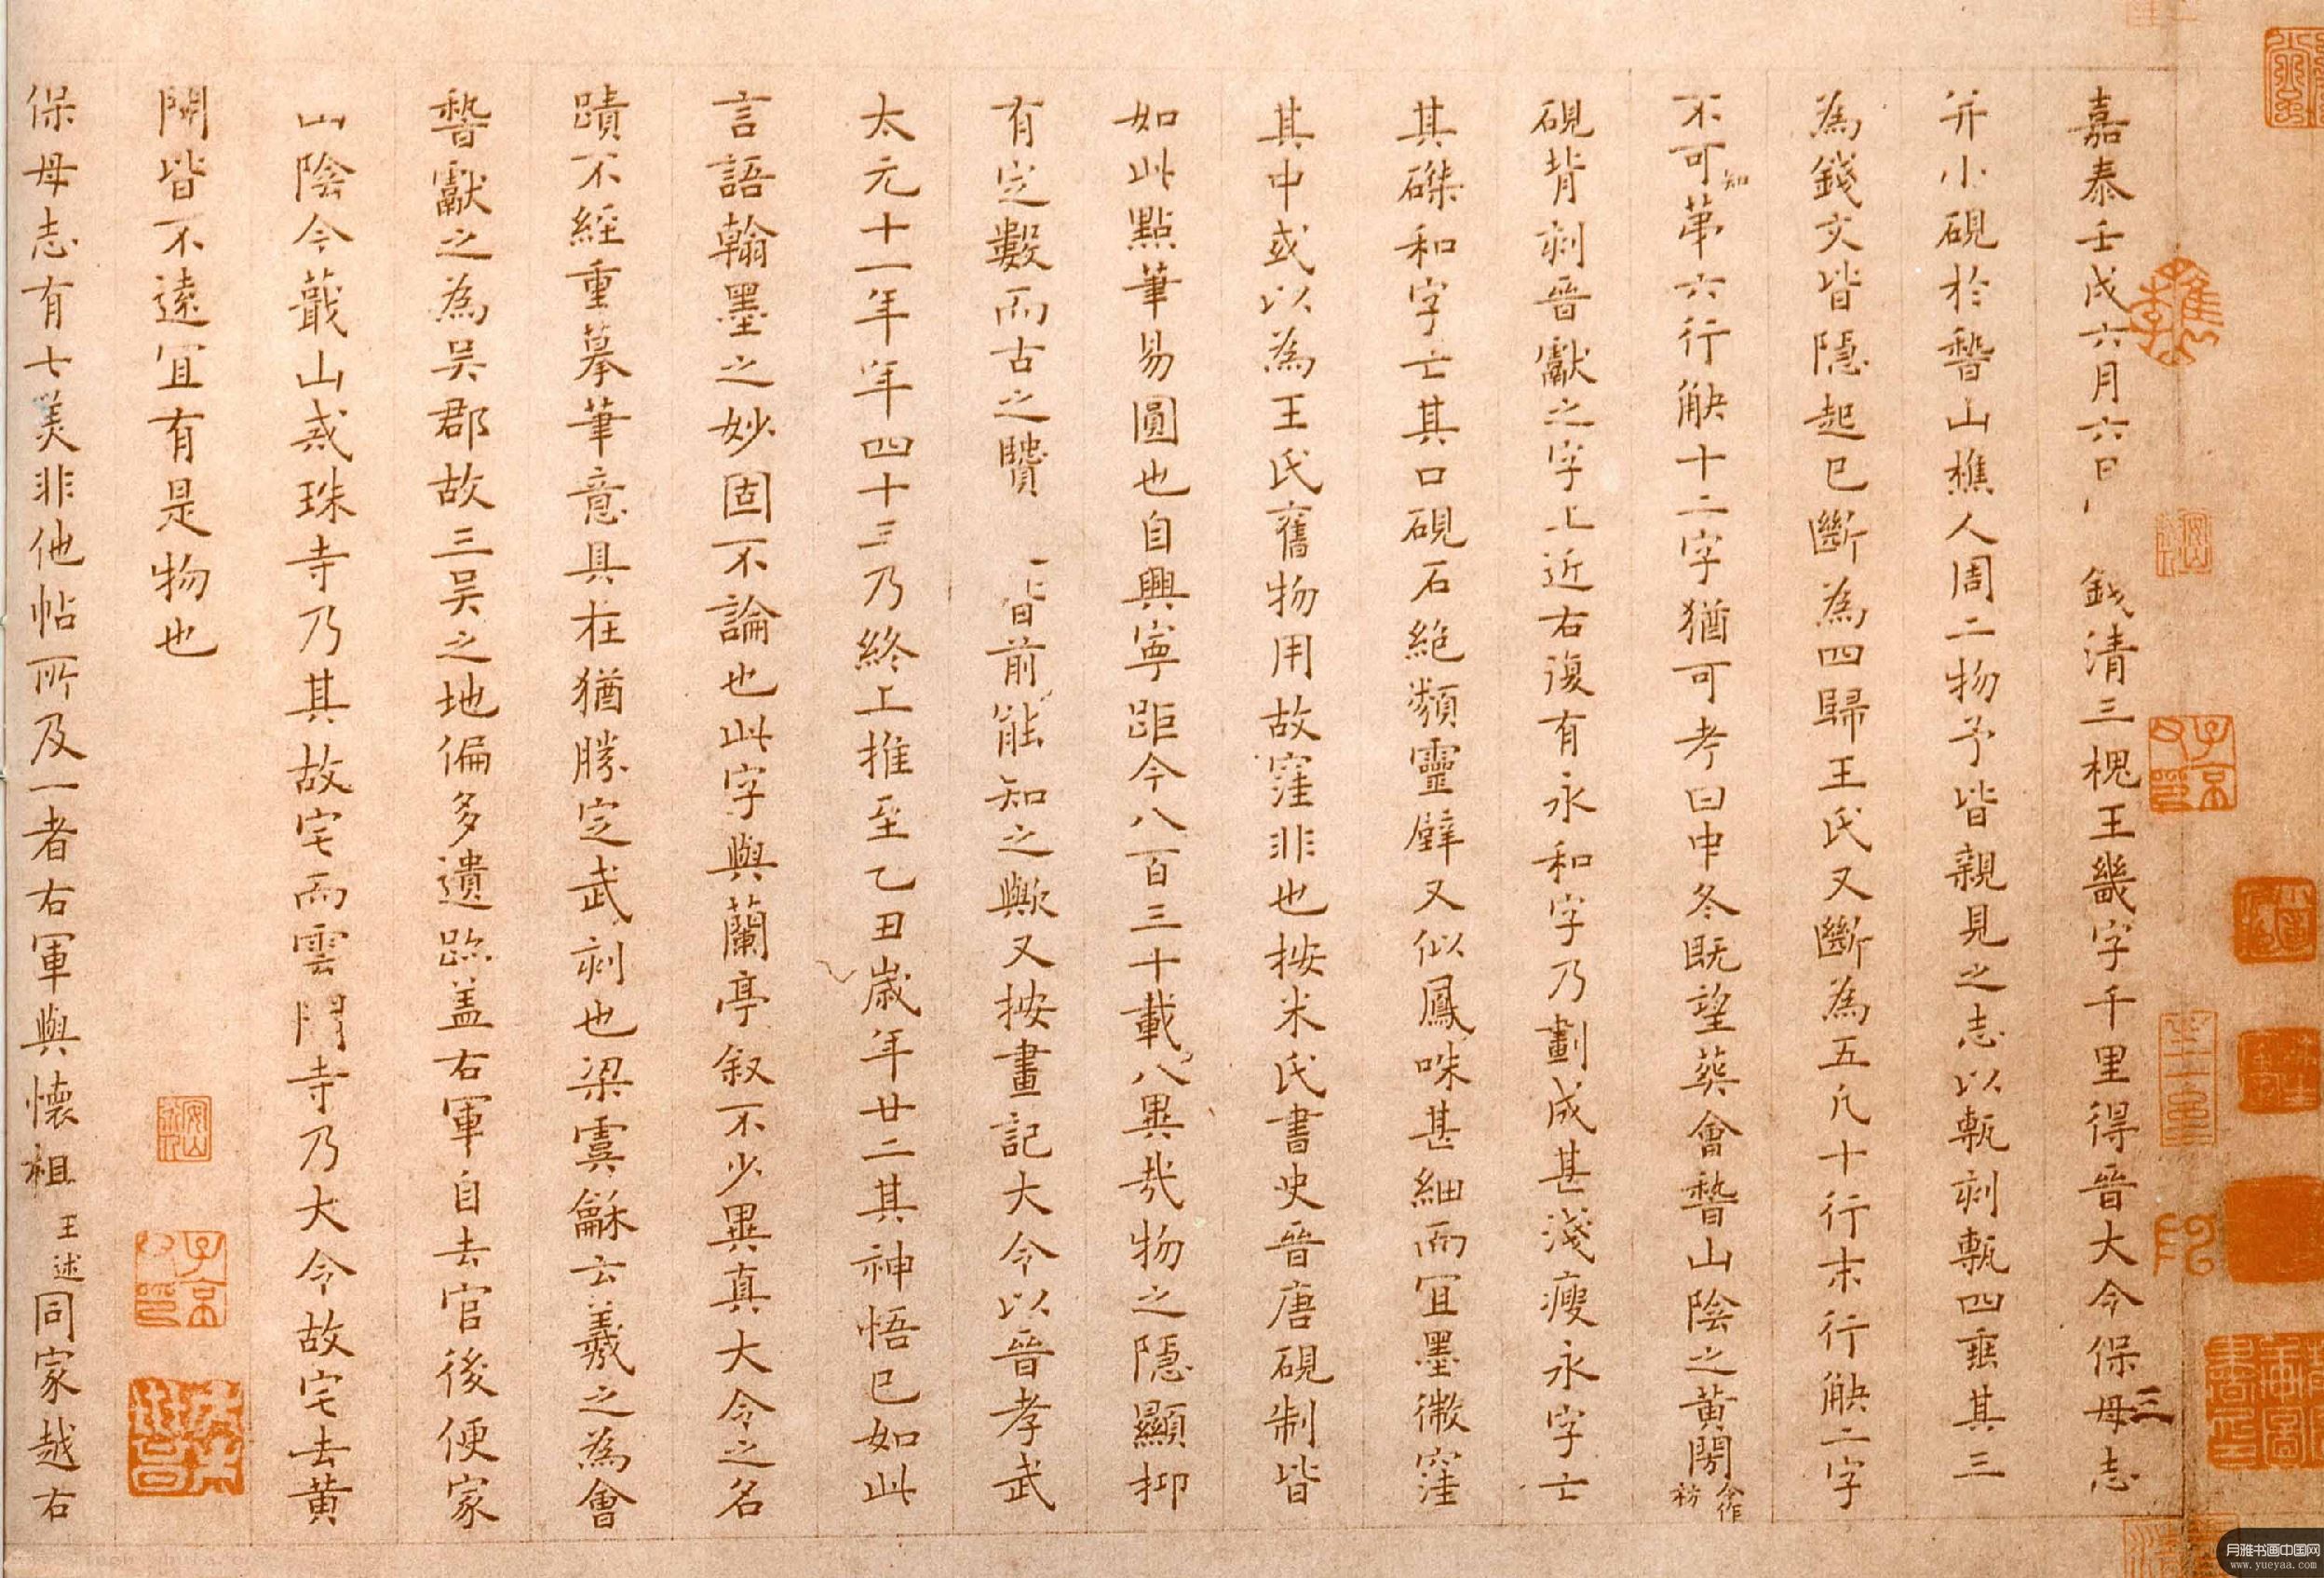 嘉泰壬戌六月六日錢清三槐王畿字千里得晉大令保母志
并小硯於稽山樵人周二物予皆親見之志以甎刻甎四垂其三
為錢文皆隱起已斷為四歸王氏又斷為五凡十行末行缺二字
不可知第六行缺十二字猶可考曰中冬既望葬會稽山陰之黃閍今作祊
硯背刻晉獻之字上近右復有永和字乃劃成甚淺瘦永字亡
其磔和字亡其口硯石絕類靈壁又似鳳咮甚細而宜墨微窪
其中或以為王氏舊物用故窪非也按米氏書史晉唐硯制皆
如此點筆易圓也自興寧距今八百三十載八異哉物之隱顯抑
有定數而古之賢皆前能知之歟又按畫記大令以晉孝武
太元十一年年四十三乃終上推至乙丑歲年廿二其神悟已如此
言語翰墨之妙固不論也此字與蘭亭敘不少異真大令之名
蹟不經重摹筆意具在猶勝定武刻也梁虞龢云羲之為會
稽獻之為吳郡故三吳之地偏多遺跡蓋右軍自去官後便家
山陰今蕺山戒珠寺乃其故宅而雲門寺乃大令故宅去黃
閍皆不遠宜有是物也
保母志有七美非他帖所及一者右軍與懷祖王述同家越右
三
月雅书画中国网
www.yueyaa.com